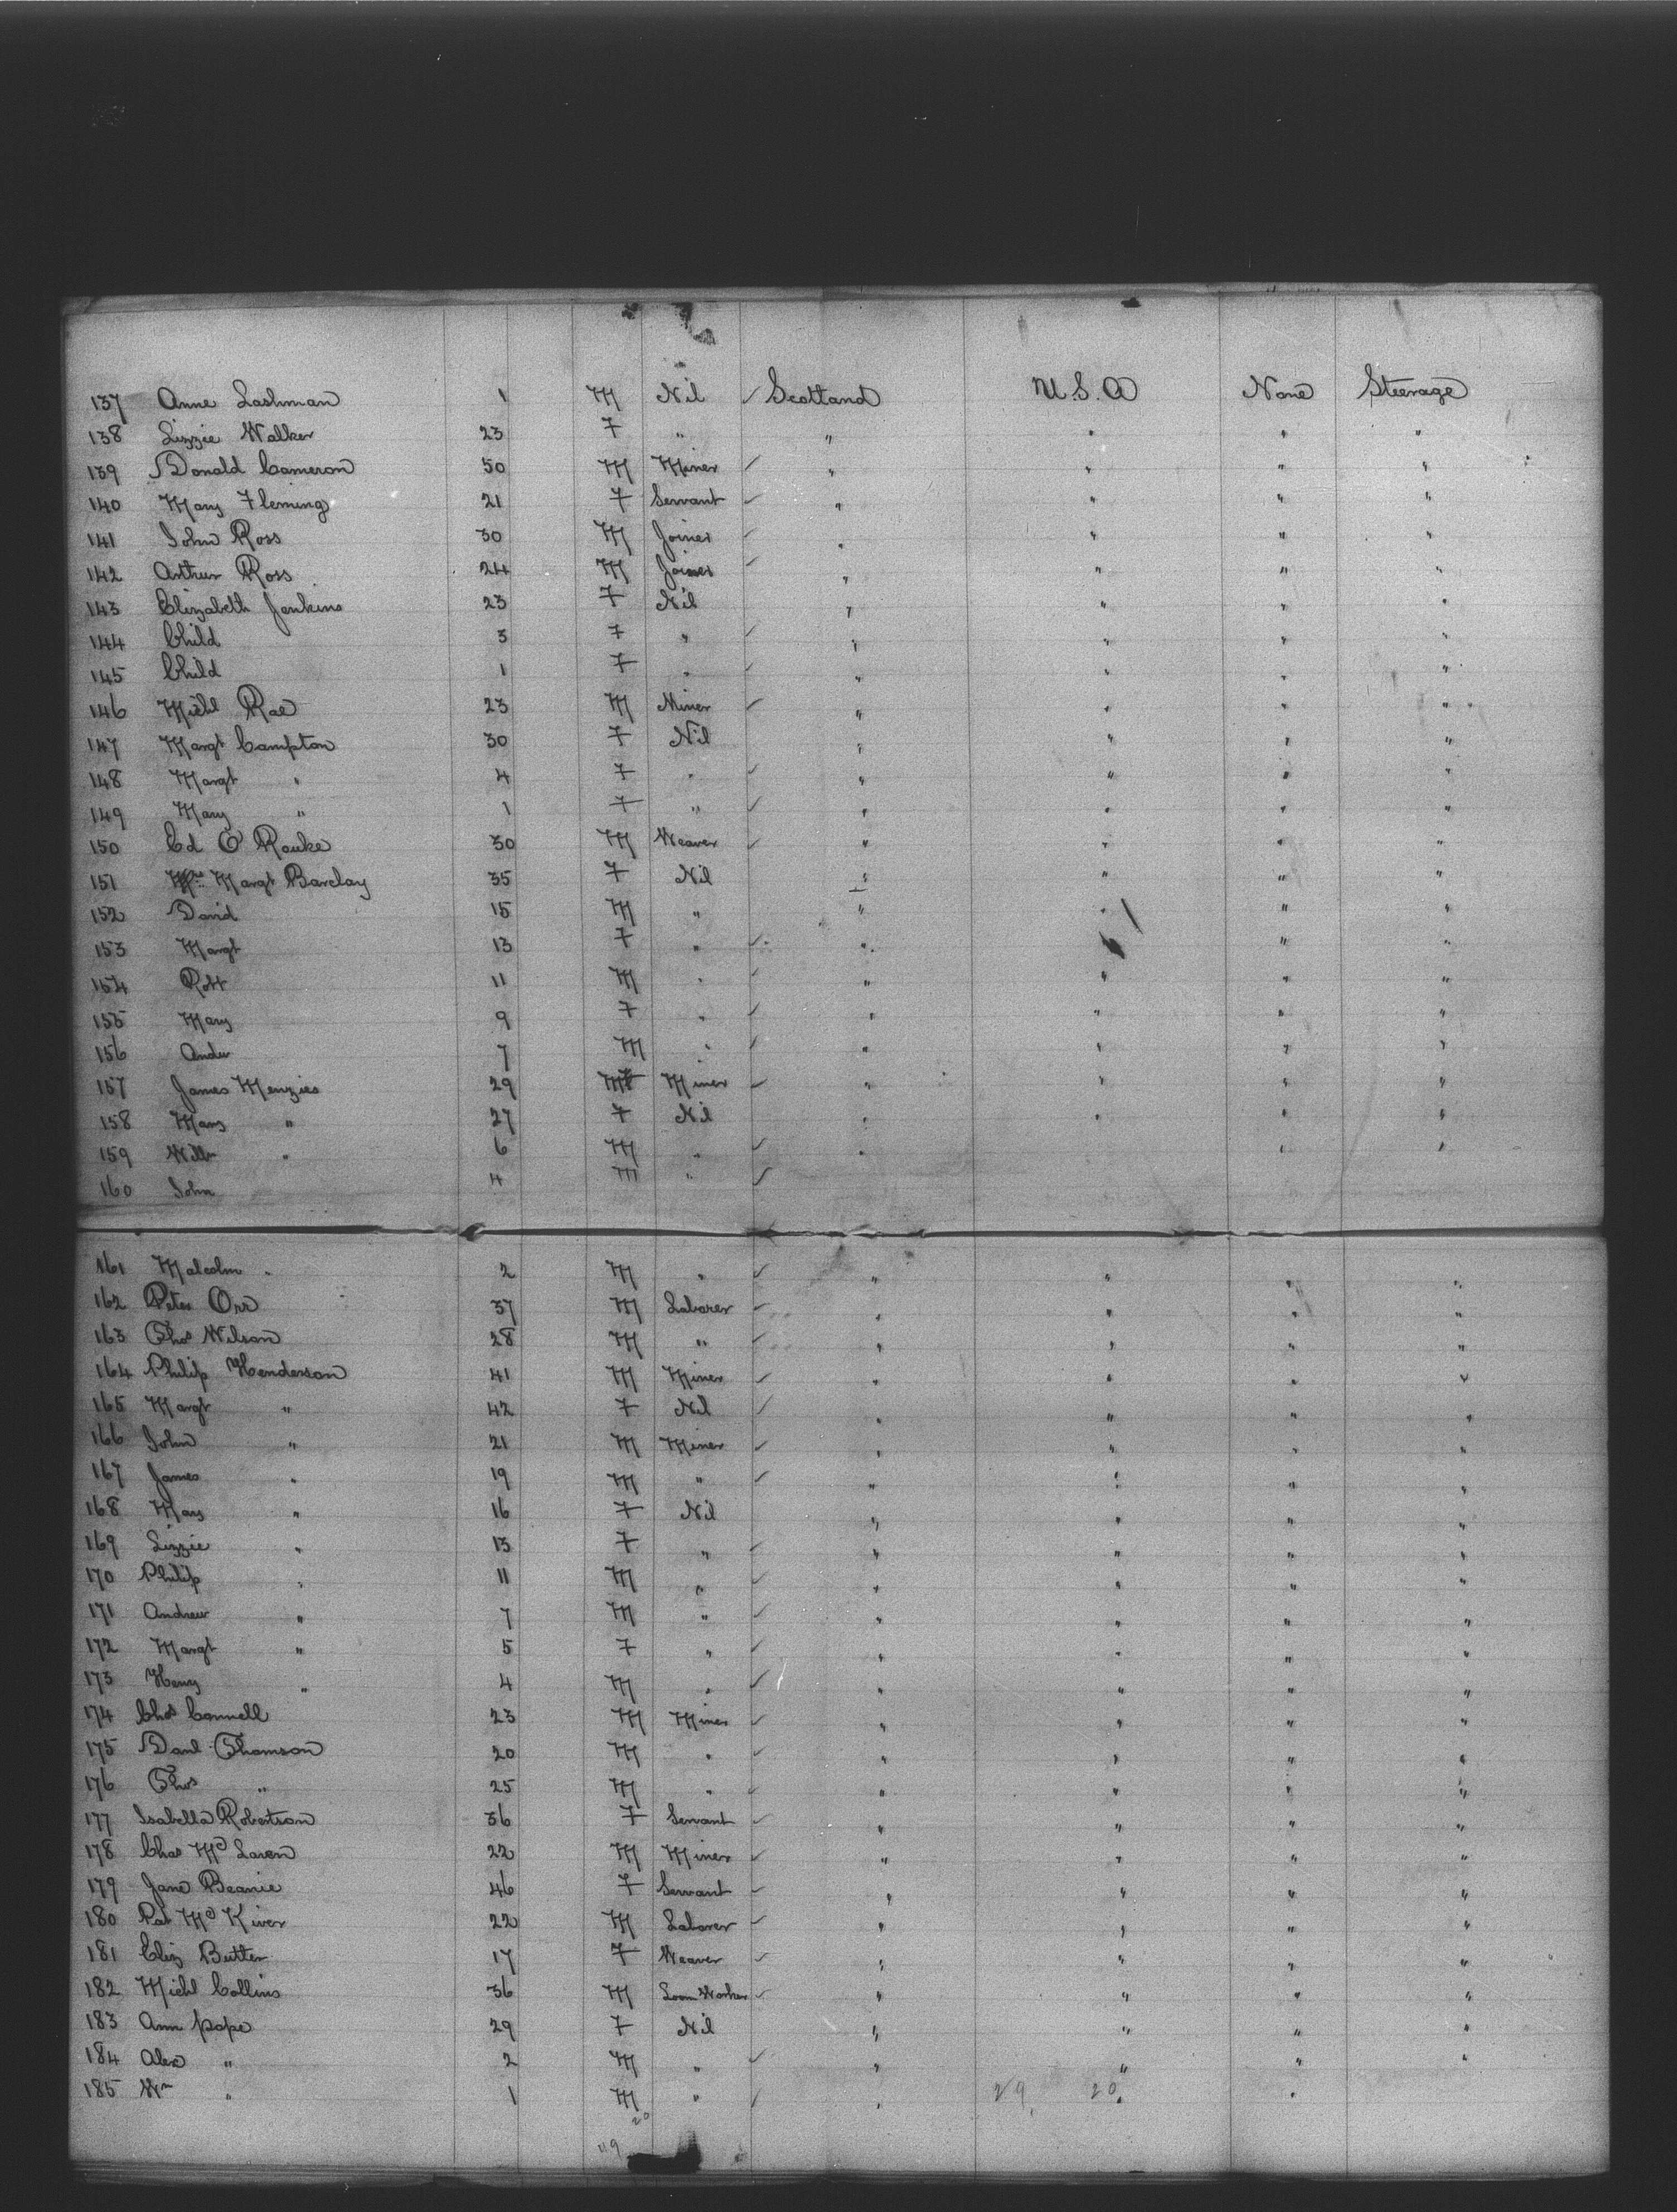 137 Anne Lashman 1 M Nil ✓ Scotland U.S.A None Steerage
138 Lizzie Walker 23 F " " " " "
139 Donald Cameron 50 M Miner ✓ " " " "
140 Mary Fleming 21 F Servant ✓ " " " "
141 John Ross 30 M Joiner ✓ " " " "
142 Arthur Ross 24 M Joiner ✓ " " " "
143 Elizabeth Jenkins 23 F Nil " " " "
144 Child 3 F " ✓ " " " "
145 Child 1 F " ✓ " " " "
146 Michl Rae 23 M Miner ✓ " " " "
147 Margt Campton 30 F Nil " " " "
148 Margt " 4 F " ✓ " " " "
149 Mary " 1 F " ✓ " " " "
150 Ed O'Rouke 30 M Weaver ✓ " " " "
151 Margt Barclay 35 F Nil " " " "
152 David 15 M " " " " "
153 Margt 13 F " ✓ " " "
154 Robt 11 M " ✓ " " " "
155 Mary 9 F " ✓ " " " "
156 Andw 7 M " ✓ " " " "
157 James Menzies 29 M Miner ✓ " " " "
158 Mary " 27 F Nil " " " "
159 Willm " 6 M " ✓ " " "
160 John 4 M " ✓
161 Malcolm " 2 M " ✓ " " " "
162 Peter Orr 37 M Laborer ✓ " " " "
163 Thos Wilson 28 M " ✓ " " " "
164 Philip Henderson 41 M Miner ✓ " " " "
165 Margt " 42 F Nil ✓ " " " "
166 John " 21 M Miner ✓ " " " "
167 James " 19 M " ✓ " " " "
168 Mary " 16 F Nil " " " "
169 Lizzie " 13 F " ✓ " " " "
170 Philip " 11 M " ✓ " " " "
171 Andrew " 7 M " ✓ " " " "
172 Margt " 5 F " ✓ " " " "
173 Henry " 4 M " ✓ " " " "
174 Chas Connell 23 M Miner ✓ " " " "
175 Danl Thomson 20 M " ✓ " " " "
176 Thos " 25 M " ✓ " " " "
177 Isabella Robertson 36 F Servant ✓ " " " "
178 Chas McLaren 22 M Miner ✓ " " " "
179 Jane Beanie 46 F Servant ✓ " " " "
180 Pat McKiver 22 M Laborer ✓ " " " "
181 Eliz Butter 17 F Weaver ✓ " " " "
182 Michl Collins 36 M Loom Worker ✓ " " " "
183 Ann Pope 29 F Nil " " " "
184 Alex " 2 M " ✓ " " " "
185 Wm " 1 M " ✓ " 29 20 " "
20